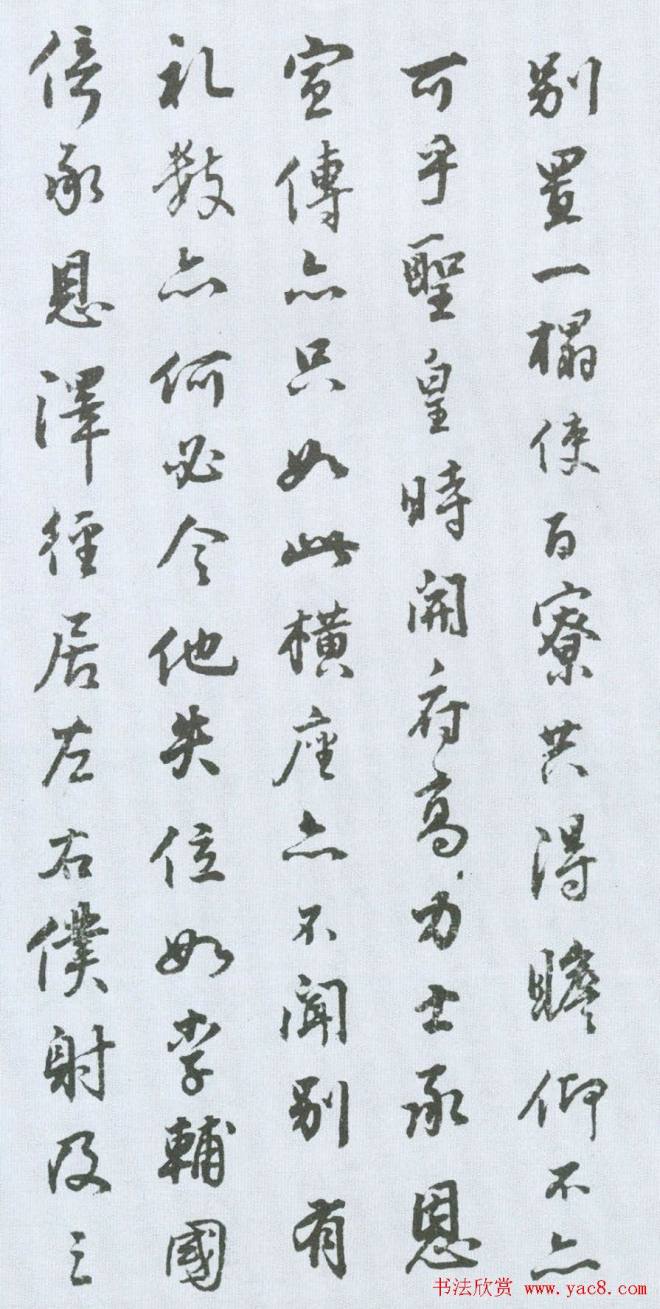 别置一榻使百寮共得瞻仰不亦
可乎聖皇時開府高力士承恩
宣傳亦只如此橫座亦不聞别有
礼数亦何必令他失位如李輔國
倚承恩澤徑居左右僕射及三
书法欣赏 www.yac8.com